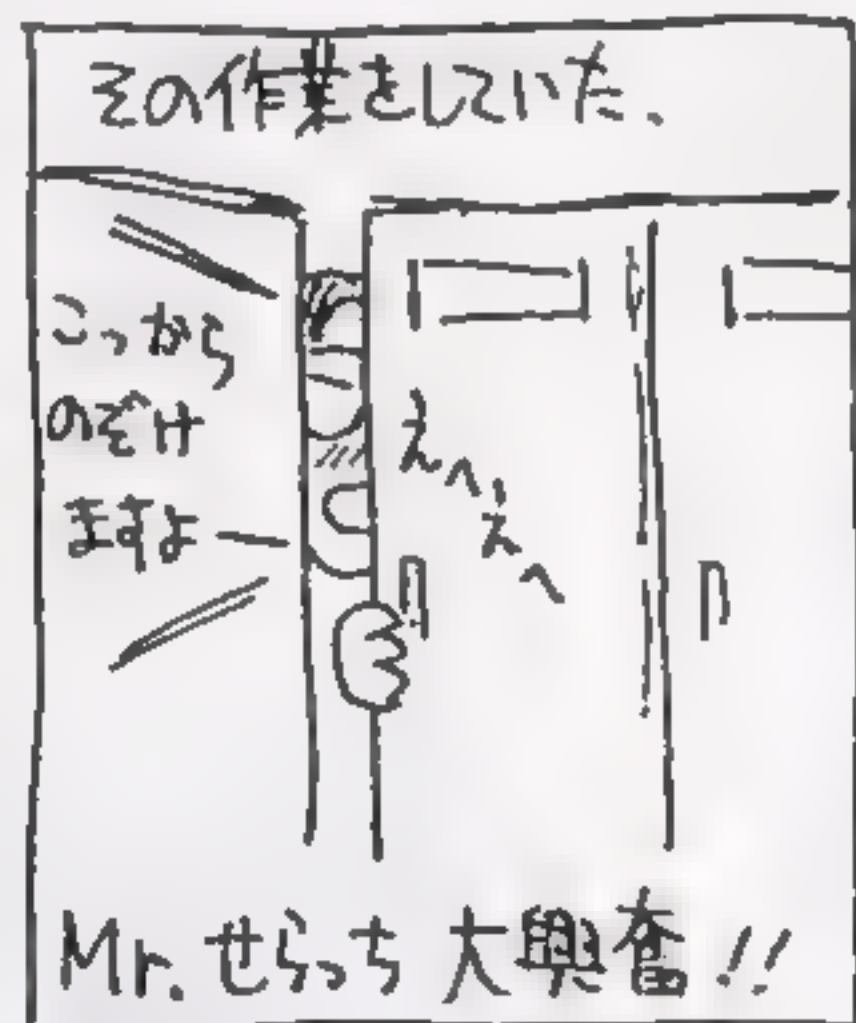 その作業をしていた、
こっから
のぞけ
ますよー
えへえへ
Mr.せらっち 大興奮!!